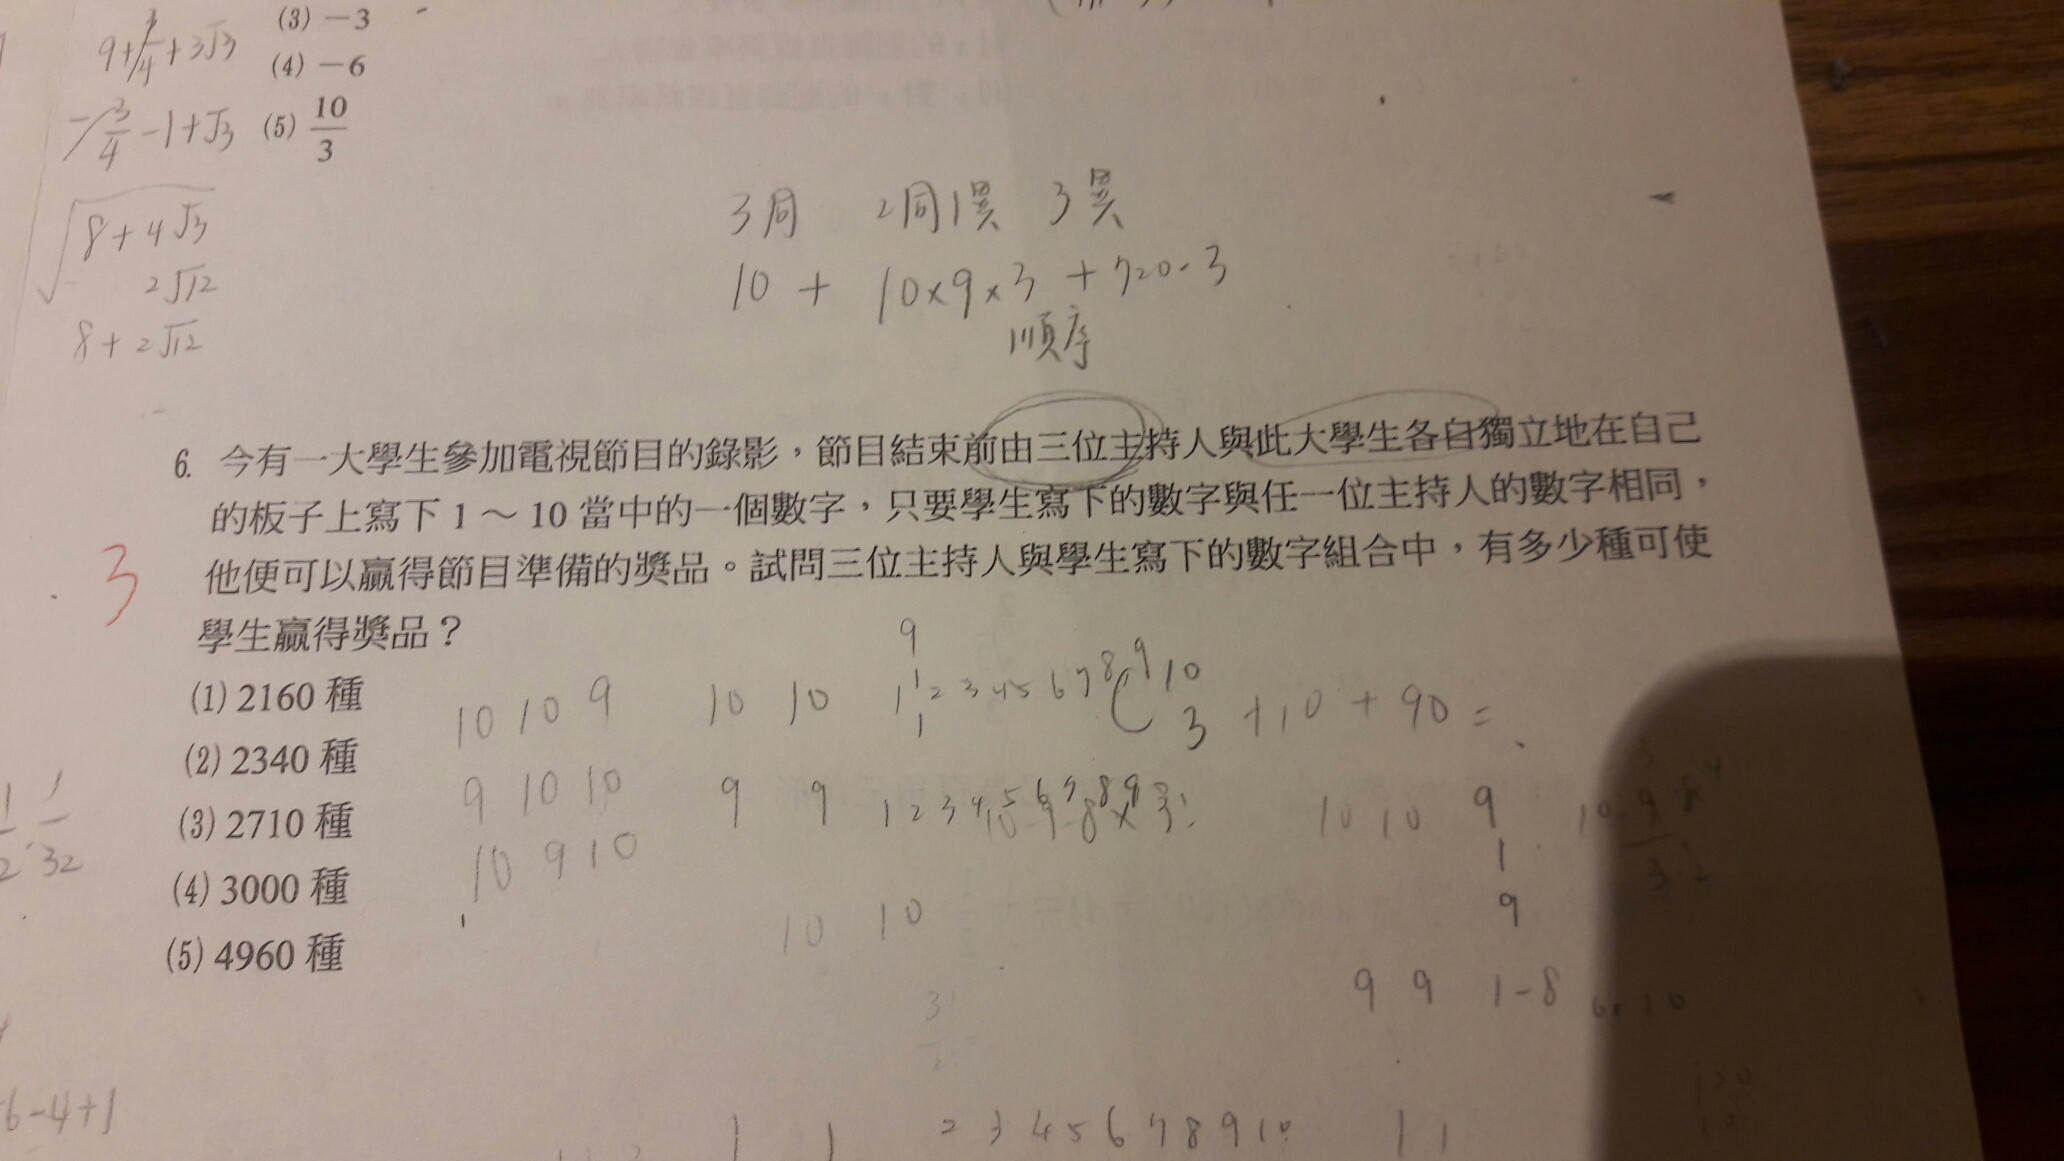 (3) −3
9+3/4+3√3
(4) −6
−3/4−1+√3 (5) 10/3
√8+4√3
2√12
8+2√12
3同 2同1異 3異
10 + 10×9×3 + 720·3
順序
6. 今有一大學生參加電視節目的錄影，節目結束前由三位主持人與此大學生各自獨立地在自己
的板子上寫下 1～10 當中的一個數字，只要學生寫下的數字與任一位主持人的數字相同，
他便可以贏得節目準備的獎品。試問三位主持人與學生寫下的數字組合中，有多少種可使
學生贏得獎品？
3
(1) 2160 種
(2) 2340 種
(3) 2710 種
(4) 3000 種
(5) 4960 種
10 10 9
9 10 10
10 9 10
10 10
9
1 2 3 4 5 6 7 8 9 10
1
1
C 3 +10 + 90 =
9 9 1 2 3 4 5 6 7 8 9
×3!
10 10
10 10 9
1
9
9 9 1-8
-6-4+1
1 1 2 3 4 5 6 7 8 9 10 1 1